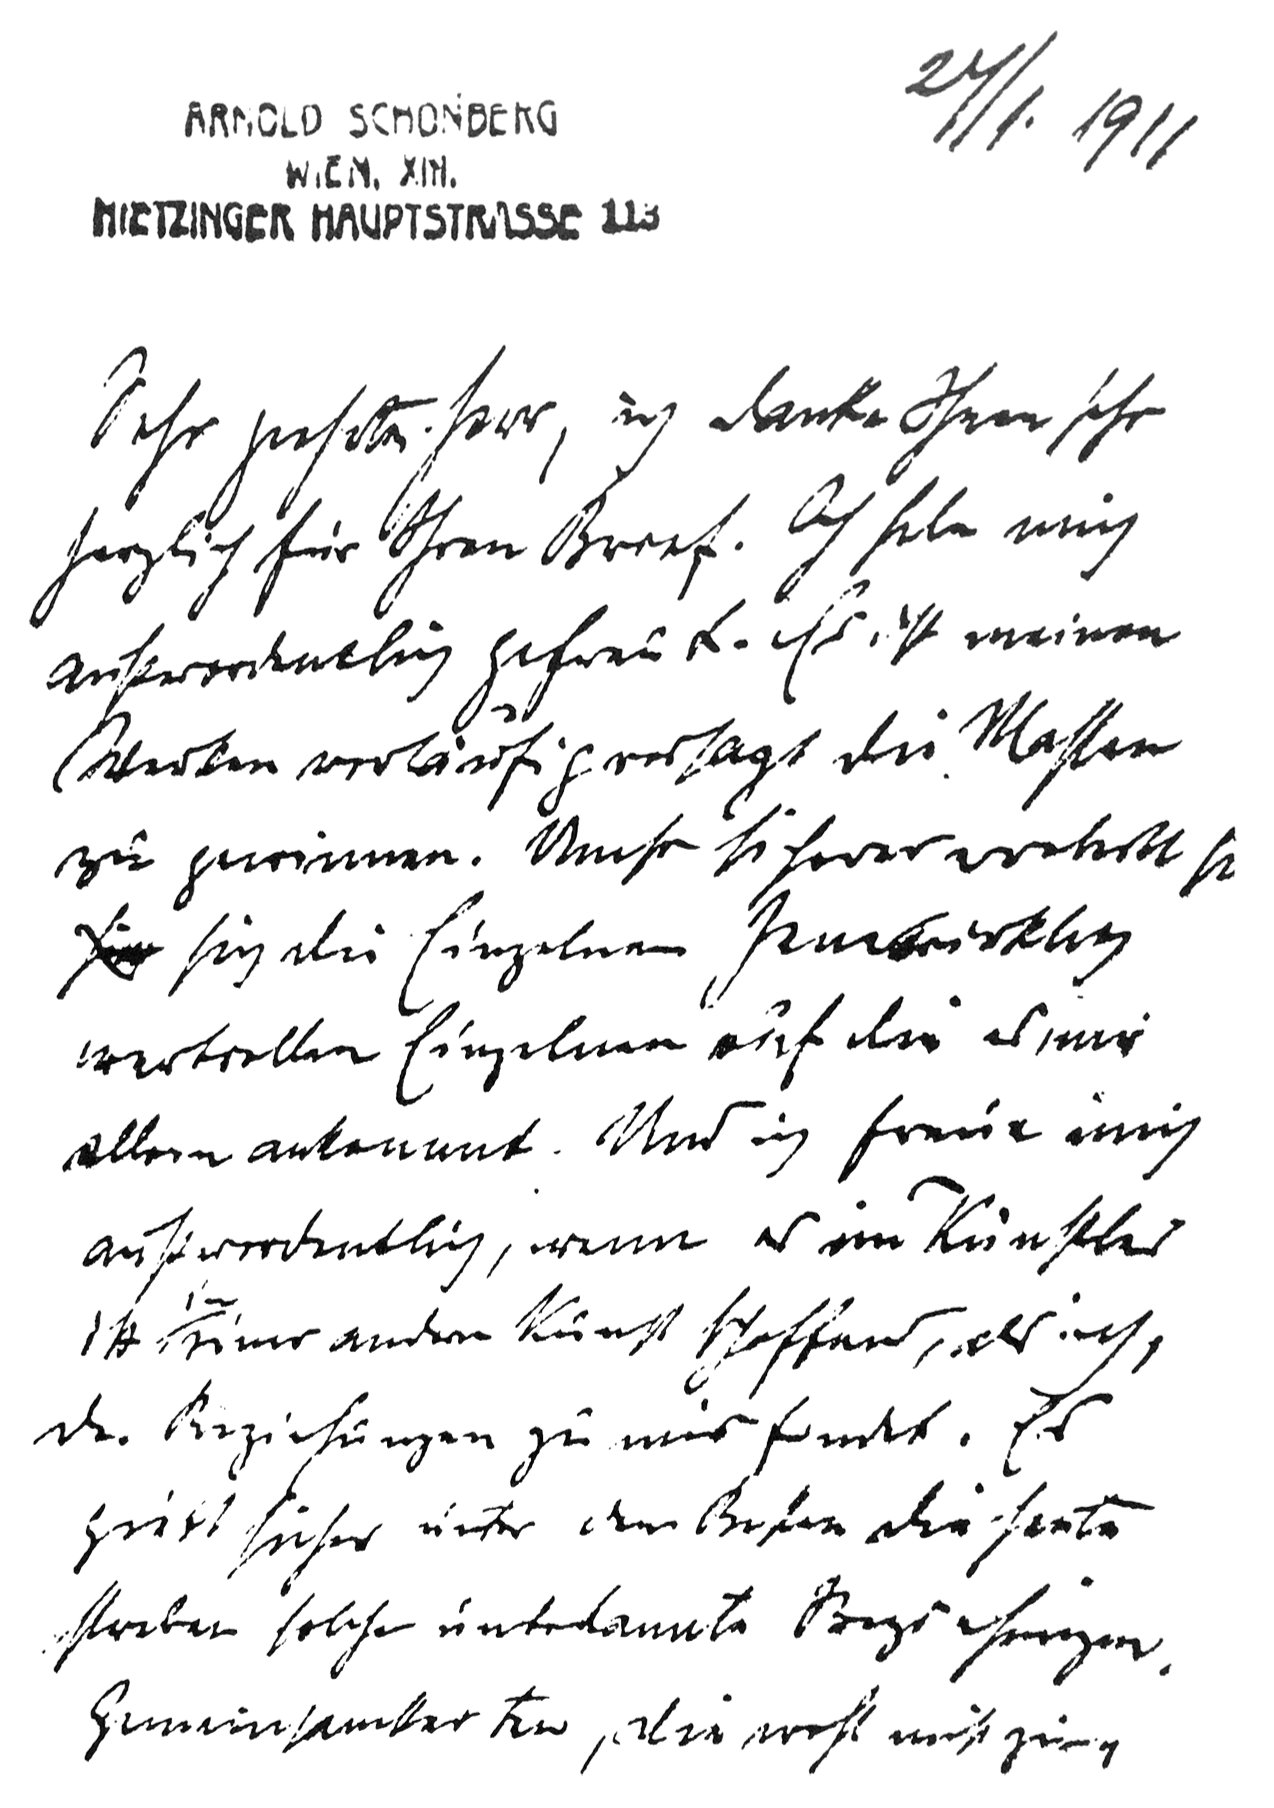 24/1. 1911
ARNOLD SCHÖNBERG
WIEN, XIII.
HIETZINGER HAUPTSTRASSE 113
Sehr geehrter Herr, ich danke Ihnen sehr
herzlich für Ihren Brief. Ich habe mich
außerordentlich gefreut. Es ist meinen
Werken vorläufig versagt die Massen
zu gewinnen. Umso sicherer erobern sie
sich die Einzelnen. Jene wirklich
wertvollen Einzelnen auf die es mir
allein ankommt. Und ich freue mich
außerordentlich, wenn es ein Künstler
ist in einer andern Kunst schaffend, als ich,
der Beziehungen zu mir findet. Es
giebt sicher unter den Besten die heute
streben solche unbekannte Beziehungen,
Gemeinsamkeiten, die wohl nicht